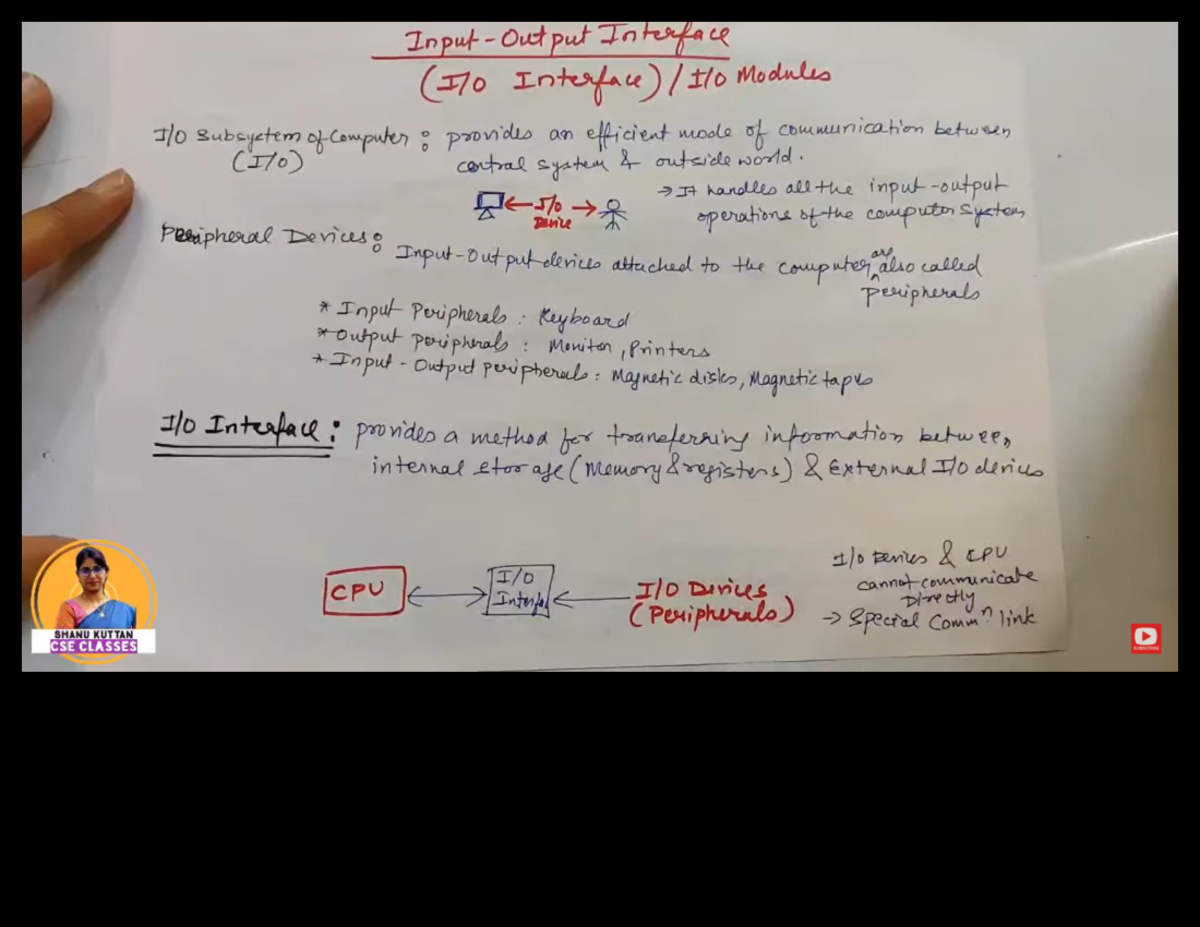 Input-Output Interface
(I/O Interface) / I/O Modules
I/O Subsystem of Computer : provides an efficient mode of communication between
(I/O) central system & outside world.
← I/O → → It handles all the input-output
Device operations of the computer system
Peripheral Devices : Input-Output devices attached to the computer are also called
peripherals
* Input Peripherals : Keyboard
* Output peripherals : Monitor, Printers
* Input-Output peripherals : Magnetic disks, Magnetic tapes
I/O Interface : provides a method for transferring information between
internal storage (Memory & registers) & External I/O devices
I/O Devices & CPU
cannot communicate
Directly
→ Special Commⁿ link
CPU
I/O
Interface
I/O Devices
(Peripherals)
SHANU KUTTAN
CSE CLASSES
SUBSCRIBE